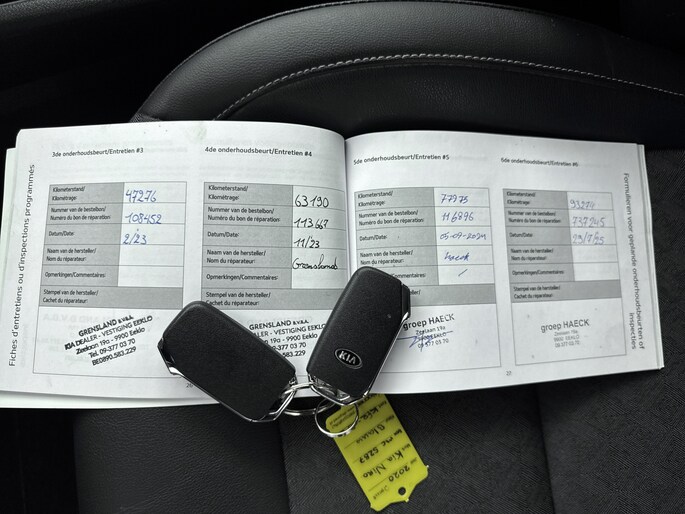 Fiches d'entretiens ou d'inspections programmés
3de onderhoudsbeurt/Entretien #3
Kilometerstand/
Kilométrage:
47276
Nummer van de bestelbon/
Numéro du bon de réparation:
108452
Datum/Date:
2/23
Naam van de hersteller/
Nom du réparateur:
Opmerkingen/Commentaires:
Stempel van de hersteller/
Cachet du réparateur:
GRENSLAND b.v.b.a.
KIA DEALER - VESTIGING EEKLO
Zeelaan 19a - 9900 Eeklo
Tel. 09-377 03 70
BE0890.583.229
4de onderhoudsbeurt/Entretien #4
Kilometerstand/
Kilométrage:
63190
Nummer van de bestelbon/
Numéro du bon de réparation:
113667
Datum/Date:
11/23
Naam van de hersteller/
Nom du réparateur:
Opmerkingen/Commentaires:
Stempel van de hersteller/
Cachet du réparateur:
GRENSLAND b.v.b.a.
DEALER - VESTIGING EEKLO
19a - 9900 Eeklo
09-377 03 70
583.229
5de onderhoudsbeurt/Entretien #5
Kilometerstand/
Kilométrage:
77975
Nummer van de bestelbon/
Numéro du bon de réparation:
116896
Datum/Date:
05-09-2024
Naam van de hersteller/
Nom du réparateur:
Haeck
Commentaires:
hersteller/
réparateur:
groep HAECK
Zeelaan 19a
EEKLO
09 377 03 70
6de onderhoudsbeurt/Entretien #6
Kilometerstand/
Kilométrage:
Nummer van de bestelbon/
Numéro du bon de réparation:
Datum/Date:
Naam van de hersteller/
Nom du réparateur:
Opmerkingen/Commentaires:
Stempel van de hersteller/
Cachet du réparateur:
groep HAECK
Zeelaan 19a
9900 EEKLO
09 377 03 70
Formulieren voor geplande onderhoudsbeurten of
inspecties
KIA
Kia Niro
2020